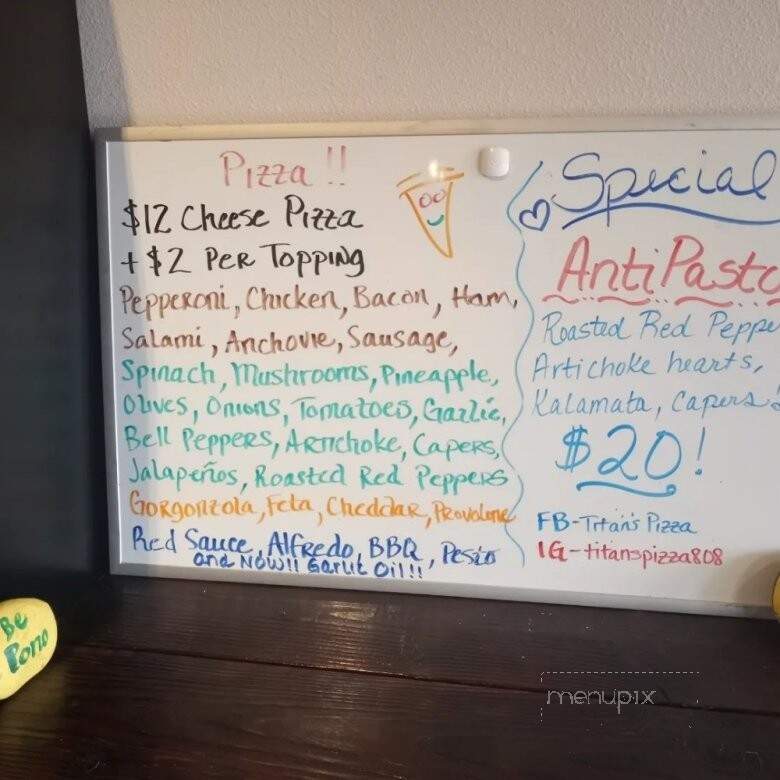 Pizza !!
$12 Cheese Pizza
+ $2 Per Topping
Pepperoni, Chicken, Bacon, Ham,
Salami, Anchovie, Sausage,
Spinach, Mushrooms, Pineapple,
Olives, Onions, Tomatoes, Garlic,
Bell Peppers, Artichoke, Capers,
Jalapeños, Roasted Red Peppers
Gorgonzola, Feta, Cheddar, Provolone
Red Sauce, Alfredo, BBQ, Pesto
and NOW!! Garlic Oil!!
Special
AntiPasto
Roasted Red Peppe
Artichoke hearts,
Kalamata, Capers
$20!
FB-Titan's Pizza
IG-titanspizza808
Be
Pono
menupix